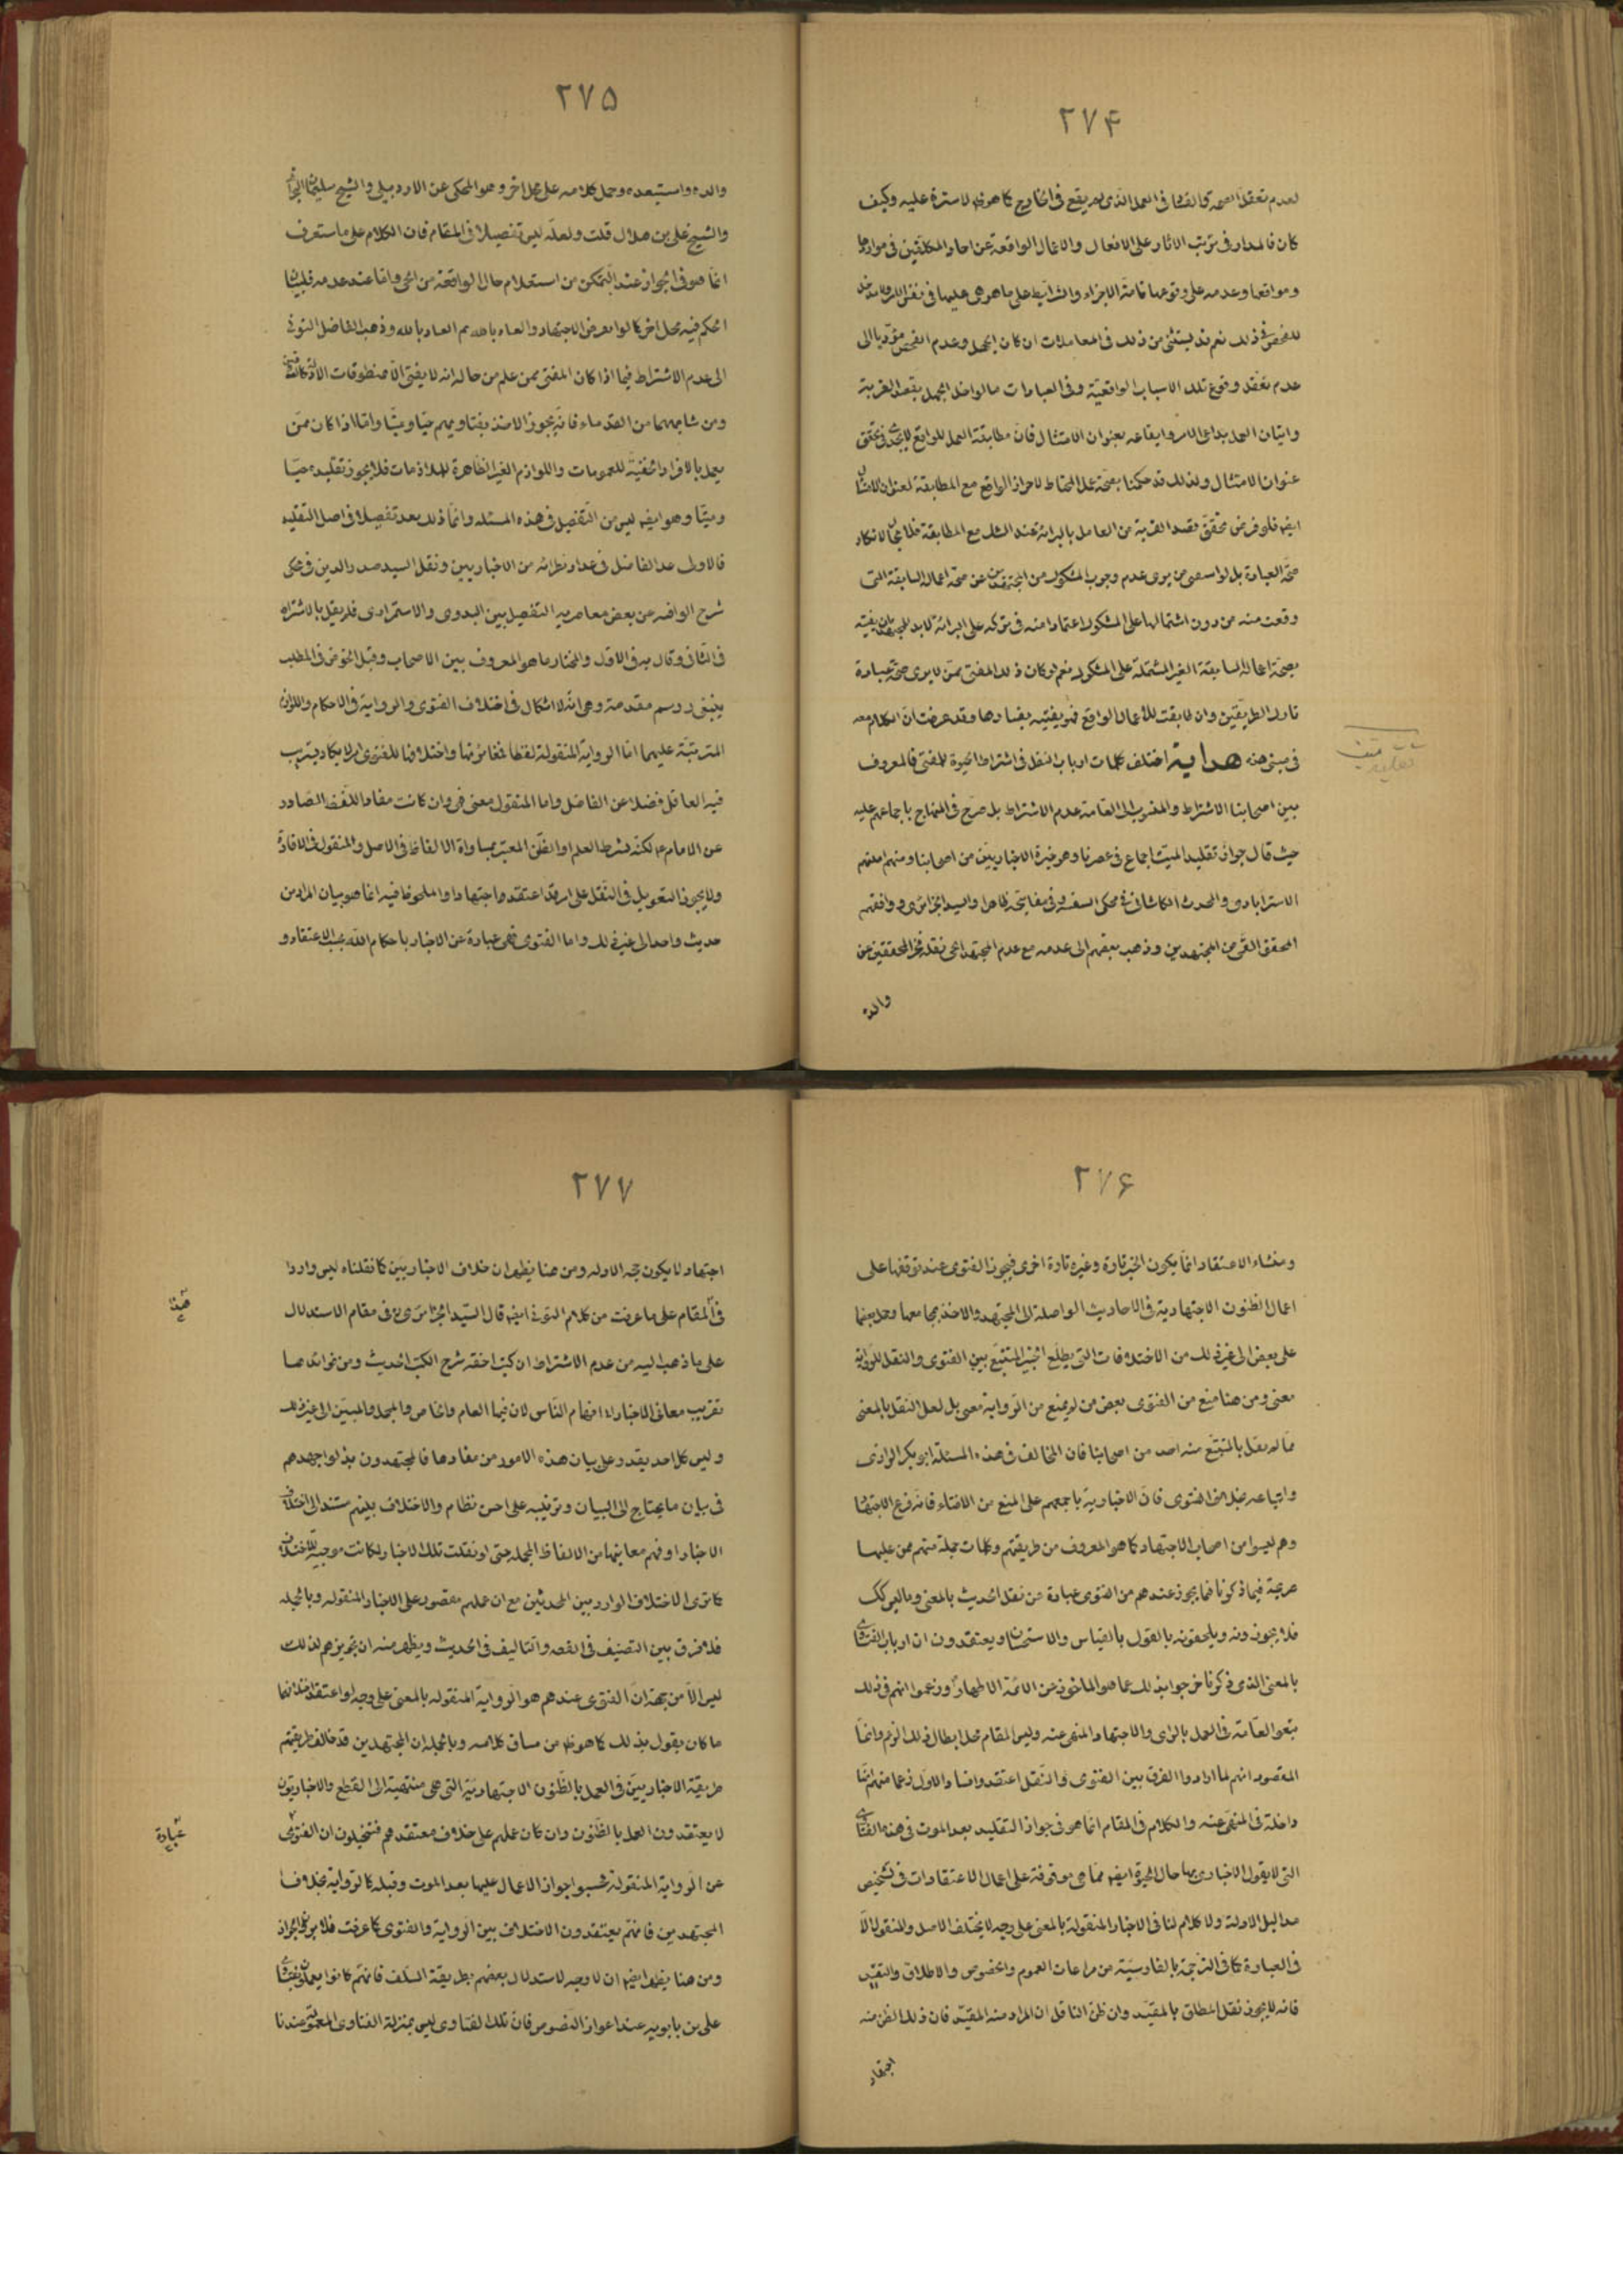 ۲۷۴
لعدم تعقل الصحة والفساد فى العمل الذى لم يقع فى الخارج كما هو ظ لا سترة عليه وكيف
كان فالمدار فى ترتب الاثار على الافعال والاعمال الواقعة عن احاد المكلفين فى مواردها
ومواقعها وعدمه على وقوعها تامة الاجزاء والشرائط على ما هى عليها فى نفس الامر ولا مدخل
للفحص فى ذلك نعم قد يستثنى من ذلك فى المعاملات ان كان الجهل وعدم الفحص مؤديا الى
عدم تعقد وقوع تلك الاسباب الواقعية وفى العبادات ما لو اخل الجهل بقصد القربة
واتيان العمل بداعى الامر وايقاعه بعنوان الامتثال فان مطابقة العمل للواقع لا يجدى فى تحقق
عنوان الامتثال ولذلك قد حكمنا بصحة عمل المحتاط لاحراز الواقع مع المطابقة لعنوان الامتثال
ايضا فلو فرض تحقق قصد القربة من العامل بالبرائة عند الشك مع المطابقة فلا مجال لانكار
صحة العبادة بل لو استفتى من يرى عدم وجوب المشكوك من المجتهدين عن صحة اعماله السابقة التى
وقعت منه من دون اشتمالها على المشكوك اعتمادا منه فى تركه على البرائة لا بد للمجتهد ان يفتيه
بصحة اعماله السابقة الغير المشتملة على المشكوك نعم لو كان ذلك المفتى ممن لا يرى صحة عبادة
تارك الطريقين وان طابقت للاعمال الواقع فهو يفتيه بفسادها وقد عرفت ان الكلام معه
فى مبنى هذه هداية اختلف كلمات ارباب النقل فى اشتراط الحيوة للمفتى فالمعروف
بين اصحابنا الاشتراط والمنسوب الى العامة عدم الاشتراط بل صرح فى المنهاج باجماعهم عليه
حيث قال جواز تقليد الميت اجماع فى عصرنا وهو خيرة الاخباريين من اصحابنا ومنهم امينهم
الاسترابادى والمحدث الكاشانى فى محكى السفينة وفى مفاتيحه ظاهرا والسيد الجزائرى ووافقهم
المحقق القمى من المجتهدين وذهب بعضهم الى عدمه مع عدم المجتهد الحى نقله فخر المحققين عن
والده
۲۷۵
والده واستبعده وحمل كلامه على محمل اخر وهو المحكى عن الاردبيلى والشيخ سليمان البحرانى
والشيخ على بن هلال قلت ولعله ليس تفصيلا فى المقام فان الكلام على ما ستعرف
انما هو فى الجواز عند التمكن من استعلام حال الواقعة من الحى واما عند عدمه فلبيان
الحكم فيه محل اخر كما لو انعرض الاجتهاد والعياذ بالله ثم العياذ بالله وذهب الفاضل التونى
الى عدم الاشتراط فيما اذا كان المفتى ممن علم من حاله انه لا يفتى الا بمنطوقات الادلة كالصدوقين
ومن شابههما من القدماء فانه يجوز الاخذ بفتاويهم حيا وميتا واما اذا كان ممن
يعمل بالافراد الخفية للعمومات واللوازم الغير الظاهرة للملازمات فلا يجوز تقليده حيا
وميتا وهو ايضا ليس من التفصيل فى هذه المسئلة وانما ذلك يعد تفصيلا فى اصل التقليد
فالاولى عد الفاضل فى عداد نظرائه من الاخباريين ونقل السيد صدر الدين فى محكى
شرح الوافيه عن بعض معاصريه التفصيل بين البدوى والاستمرارى فلم يقل بالاشتراط
فى الثانى وقال به فى الاول والمختار ما هو المعروف بين الاصحاب وقبل الخوض فى المطلب
ينبغى رسم مقدمة وهى انه لا اشكال فى اختلاف الفتوى والرواية فى الاحكام واللوازم
المترتبة عليهما اما الرواية المنقولة لفظا فمغايرتها واختلافها للفتوى امر لا يكاد يرتاب
فيه العاقل فضلا عن الفاضل واما المنقول معنى فهى وان كانت مفاد اللفظ الصادر
عن الامام ع لكنه بشرط العلم او الظن المعتبر بمساواة الالفاظ فى الاصل والمنقول فى الافادة
ولا يجوز التعويل فى النقل على امر قد اعتقده اجتهادا والملحوظ فيه انما هو بيان المراد من
حديث واحد الى غير ذلك واما الفتوى فهى عبادة عن الاخبار باحكام الله بحسب الاعتقاد و
۲۷۶
ومنشاء الاعتقاد انما يكون الخبر تارة وغيره تارة اخرى فيجوز الفتوى عند توقفها على
اعمال الظنون الاجتهادية فى الاحاديث الواصلة الى المجتهد والاخذ بمجامعها وحمل بعضها
على بعض الى غير ذلك من الاختلافات التى يطلع الخبير المتتبع بين الفتوى والنقل للرواية
معنى ومن هنا منع من الفتوى بعض من لم يمنع من الرواية معنى بل لعل النقل بالمعنى
مما لم يقل بالمنع منه احد من اصحابنا فان المخالف فى هذه المسئلة ابو بكر الرازى
واتباعه بخلاف الفتوى فان الاخبارية باجمعهم على المنع من الافتاء فانه فرع الاجتهاد
وهم ليسوا من اصحاب الاجتهاد كما هو المعروف من طريقتهم وكلمات جملة منهم ممن عليها
صريحة فيما ذكرنا فما يجوز عندهم من الفتوى عبادة عن نقل الحديث بالمعنى وما ليس كك
فلا يجوزونه ويلحقونه بالقول بالقياس والاستحسان ويعتقدون ان ارباب الفتاوى
بالمعنى الذى ذكرنا خرجوا بذلك عما هو الماخوذ عن الائمة الاطهار وزعموا انهم فى ذلك
تبعوا العامة فى العمل بالراى والاجتهاد المنهى عنه وليس المقام محل ابطال ذلك الزعم وانما
المقصود انهم لما ارادوا الفرق بين الفتوى والنقل اعتقدوا فساد الاول زعما منهم انها
داخلة فى المنهى عنه والكلام فى المقام انما هو فى جواز التقليد بعد الموت فى هذه الفتاوى
التى لا يقول الاخبارى بها حال الحيوة ايضا مما هى موقوفة على اعمال الاعتقادات فى تشخيص
مداليل الادلة ولا كلام لنا فى الاخبار المنقولة بالمعنى على وجه لا يختلف الاصل والمنقول الا
فى العبارة كما فى الترجمة بالفارسية من مراعات العموم والخصوص والاطلاق والتقييد
فانه لا يجوز نقل المطلق بالمقيد وان ظن الناقل ان المراد منه المقيد فان ذلك الظن منه
اجتهاد
۲۷۷
اجتهاد لا يكون حجة الا له ومن هنا يظهر ان خلاف الاخباريين كما نقلناه ليس واردا
فى المقام على ما عرفت من كلام التونى ايضا قال السيد الجزائرى ره فى مقام الاستدلال
على ما ذهب اليه من عدم الاشتراط ان كتب الفقه شرح الكتب الحديث ومن فوائدها
تقريب معانى الاخبار الى افهام الناس لان فيها العام والخاص والمجمل والمبين الى غير ذلك
وليس كل احد يقدر على بيان هذه الامور من مفادها فالمجتهدون بذلوا جهدهم
فى بيان ما يحتاج الى البيان وترتيبه على احسن نظام والاختلاف بينهم مستند الى اختلاف
الاخبار او فهم معانيها من الالفاظ المحتملة حتى لو نقلت تلك الاخبار لكانت موجبة للاختلاف
كما ترى الاختلاف الوارد بين المحدثين مع ان عملهم مقصور على الاخبار المنقولة وبالجملة
فلا فرق بين التصنيف فى الفقه والتاليف فى الحديث ويظهر منه ان تجويزهم لذلك
ليس الا من جهة ان الفتوى عندهم هو الرواية المنقولة بالمعنى على وجه لو اعتقد خلافها
ما كان يقول بذلك كما هو ظ من مساق كلامه وبالجملة ان المجتهدين قد خالف طريقتهم
طريقة الاخباريين فى العمل بالظنون الاجتهادية التى هى منتهية الى القطع والاخباريون
لا يعتقدون العمل بالظنون وان كان عملهم على خلاف معتقدهم فتخيلون ان الفتوى
عن الرواية المنقولة فنسبوا جواز الاعمال عليها بعد الموت وقبله كالرواية بخلاف
المجتهدين فانهم يعتقدون الاختلاف بين الرواية والفتوى كما عرفت فلا يرون الجواز
ومن هنا يظهر ايضا ان لا وجه لاستدلال بعضهم بطريقة السلف فانهم كانوا يعملون بفتاوى
على بن بابويه عند اعواز النصوص فان تلك الفتاوى ليس بمنزلة الفتاوى المعمولة عندنا
هذا
عبارة